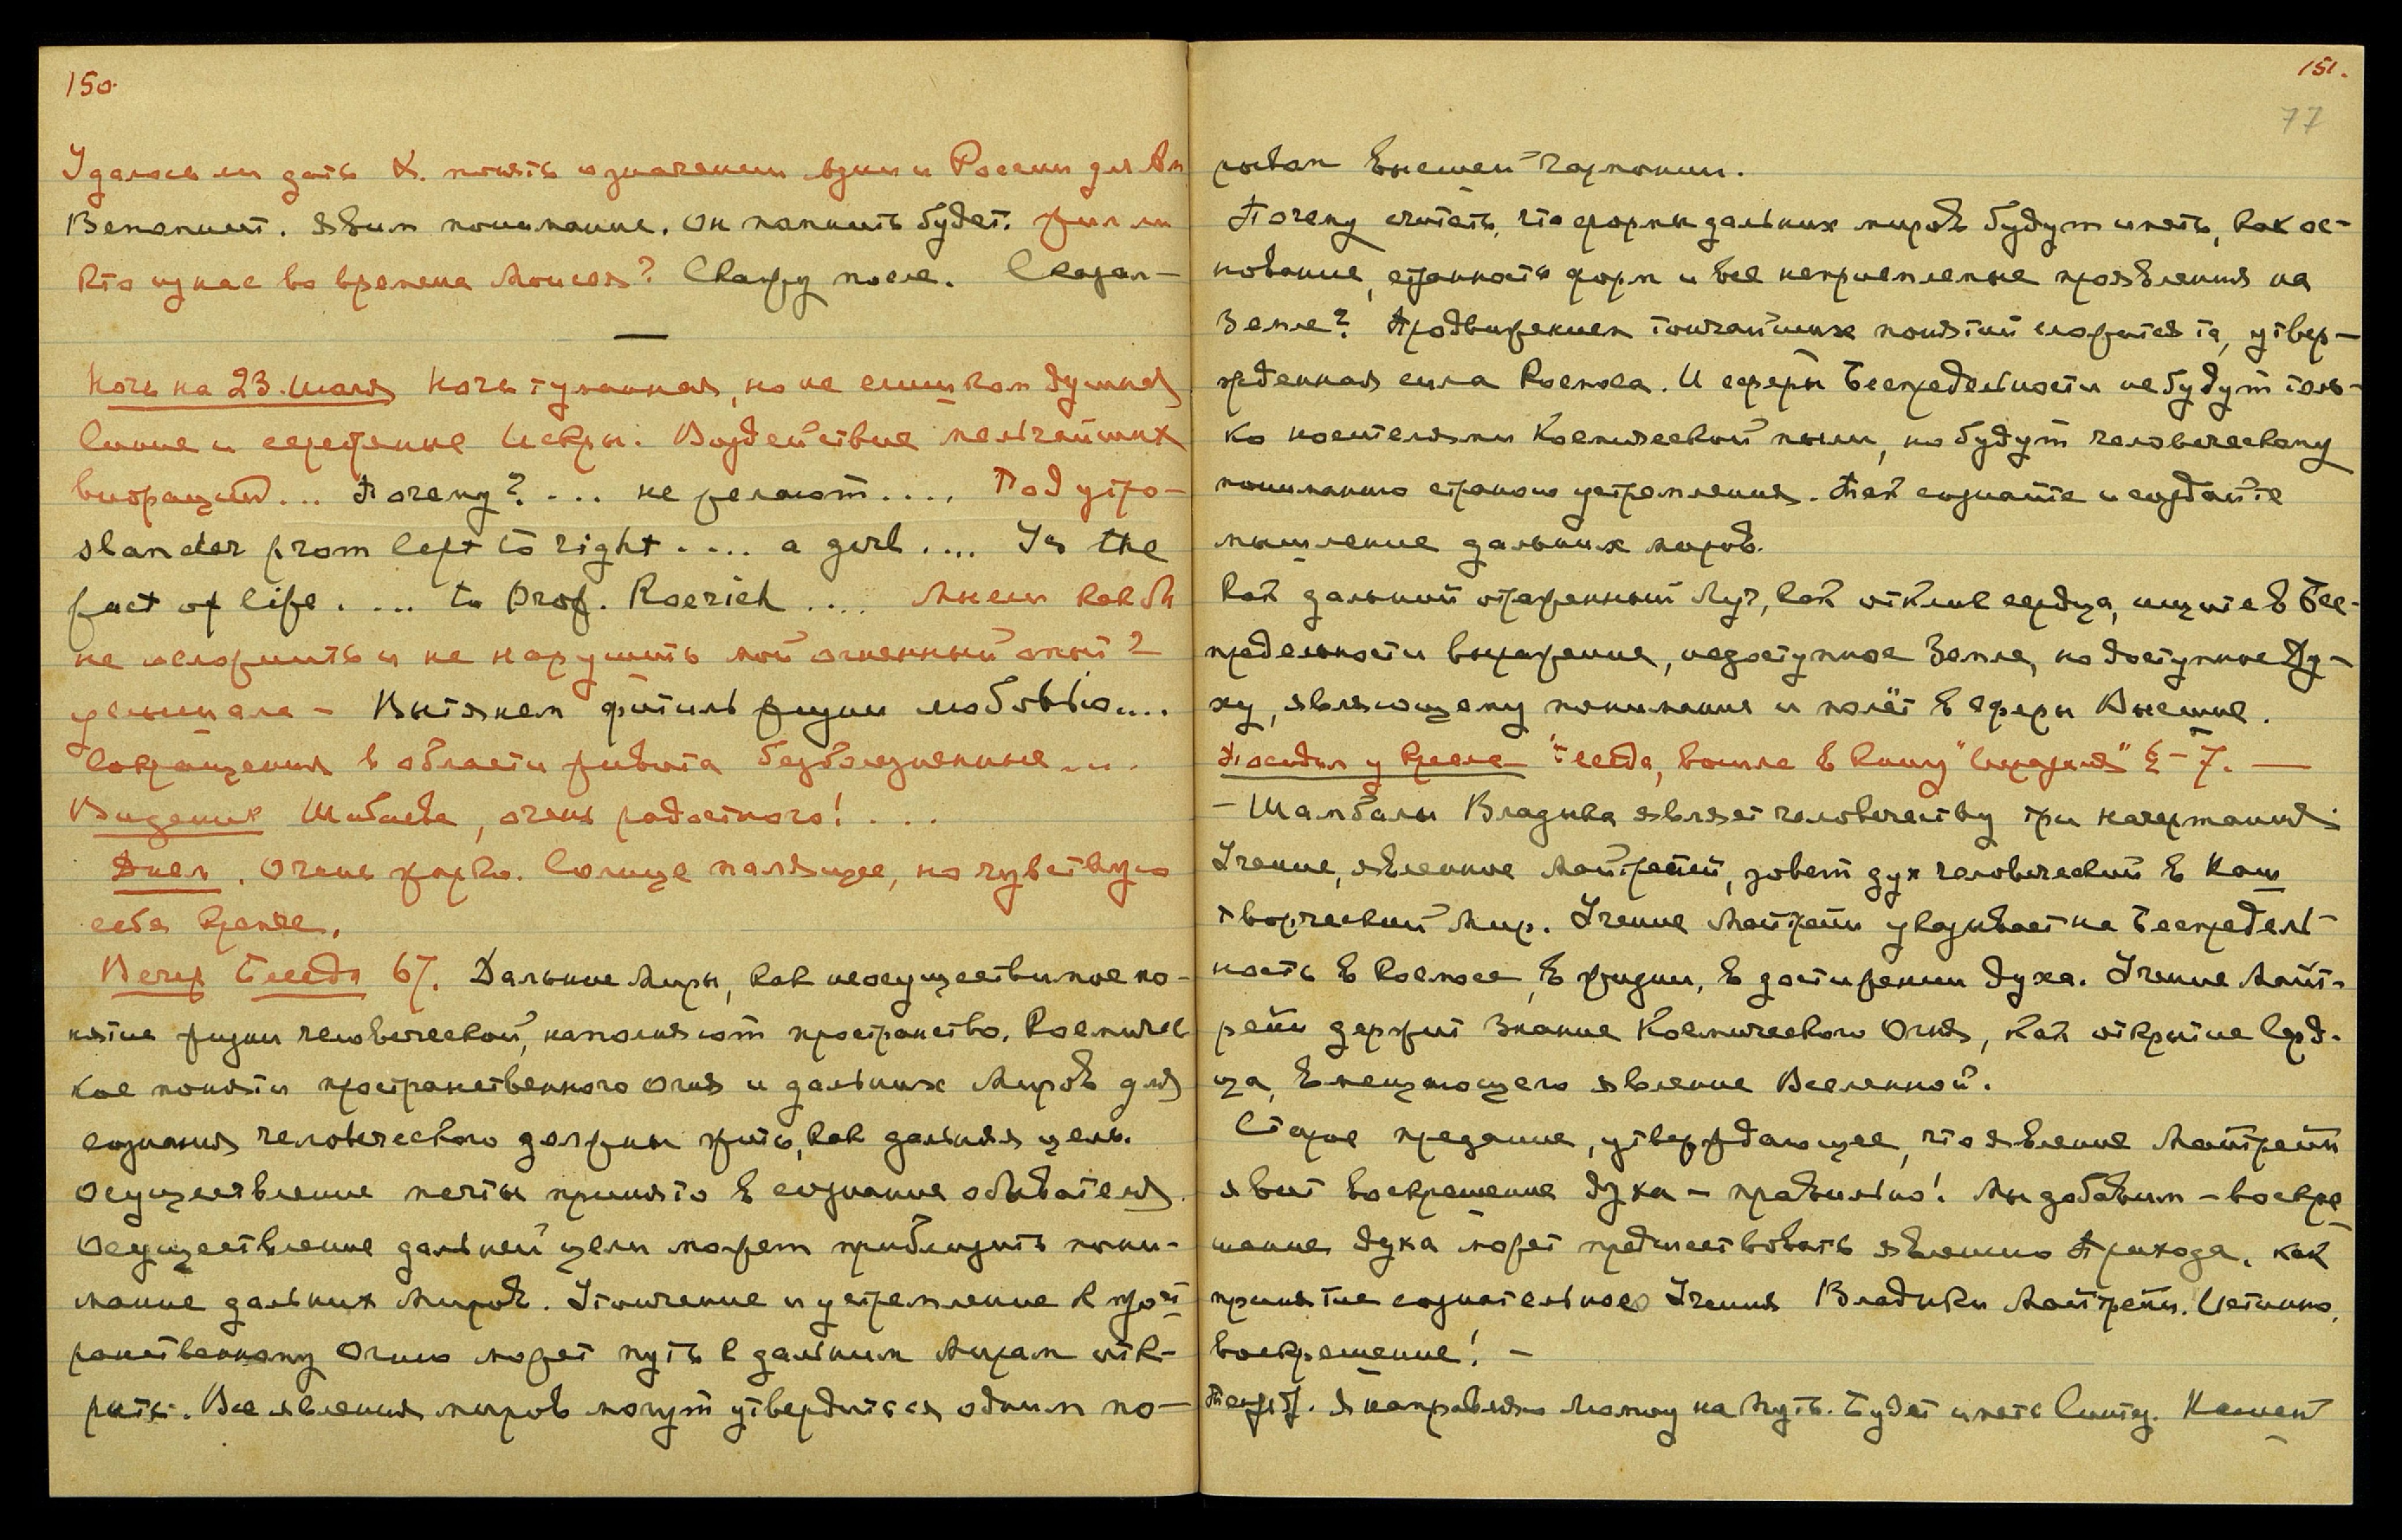 150.
Удалось ли дать К. понять о значении Азии и России для Ам
Вспомнит. Явим понимание. Он помнить будет. Жил ли
кто из нас во времена Моисея? Скажу после. Сказал—
Ночь на 23. Июля Ночь туманная, но не слишком душная
Синие и серебряные Искры. Воздействие мельчайших
вибраций... Почему? ... не желают.... Под утро—
slander from left to right.... a girl.... Is the
fact of life.... to Prof. Roerich.... Мысли как бы
не осложнить и не нарушить мой огненный опыт?
услышала — Вытянем фитиль жизни любовью....
Сокращения в области живота безболезненные....
Видение Шибаева, очень радостного! ...
Днем. Очень жарко. Солнце палящее, но чувствую
себя крепче.
Вечер Беседа 67. Дальние Миры, как неосуществимое по-
нятие жизни человеческой, наполняют пространство. Космичес
кое понятие пространственного Огня и дальних Миров для
сознания человеческого должны жить, как дальняя цель.
Осуществление мечты принято в сознание обывателя.
Осуществление дальней цели может приблизить пони-
мание дальних Миров. Утончение и устремление к прост
ранственному Огню может путь к дальним Мирам отк-
рыть. Все явления миров могут утвердиться одним по-
151.
77
рывом высшей гармонии.
Почему считать, что формы дальних миров будут иметь, как ос-
нование, странность форм и все неприемлемые проявления на
Земле? Продвижением тончайших понятий сложится та, утвер-
жденная сила Космоса. И сферы Беспредельности не будут толь-
ко носителями Космической пыли, но будут человеческому
пониманию страною устремления. Так сознайте и создайте
мышление дальних миров.
Как дальний отраженный Луч, как отклик сердца, ищите в Бес-
предельности выражение, недоступное Земле, но доступное Ду-
ху, являющему понимание и полёт в сферы Высшие.
Поседал у Кресла беседа, вошла в книгу "Иерархия" § — 7. —
— Шамбалы Владыка являет человечеству три начертания:
Учение, явленное Майтрейей, зовет дух человеческий в Наш
творческий Мир. Учение Майтрейи указывает на Беспредель-
ность в Космосе, в жизни, в достижении духа. Учение Майт-
рейи держит знание Космического Огня, как открытие Серд-
ца, вмещающего явление Вселенной.
Старое предание, утверждающее, что явление Майтрейи
явит воскрешение духа — правильно! Мы добавим — воскре
шение духа может предшествовать явлению Прихода, как
принятие сознательное Учения Владыки Майтрейи. Истинно,
воскрешение! —
Я направляю Логику на Путь. Будет иметь Силу.